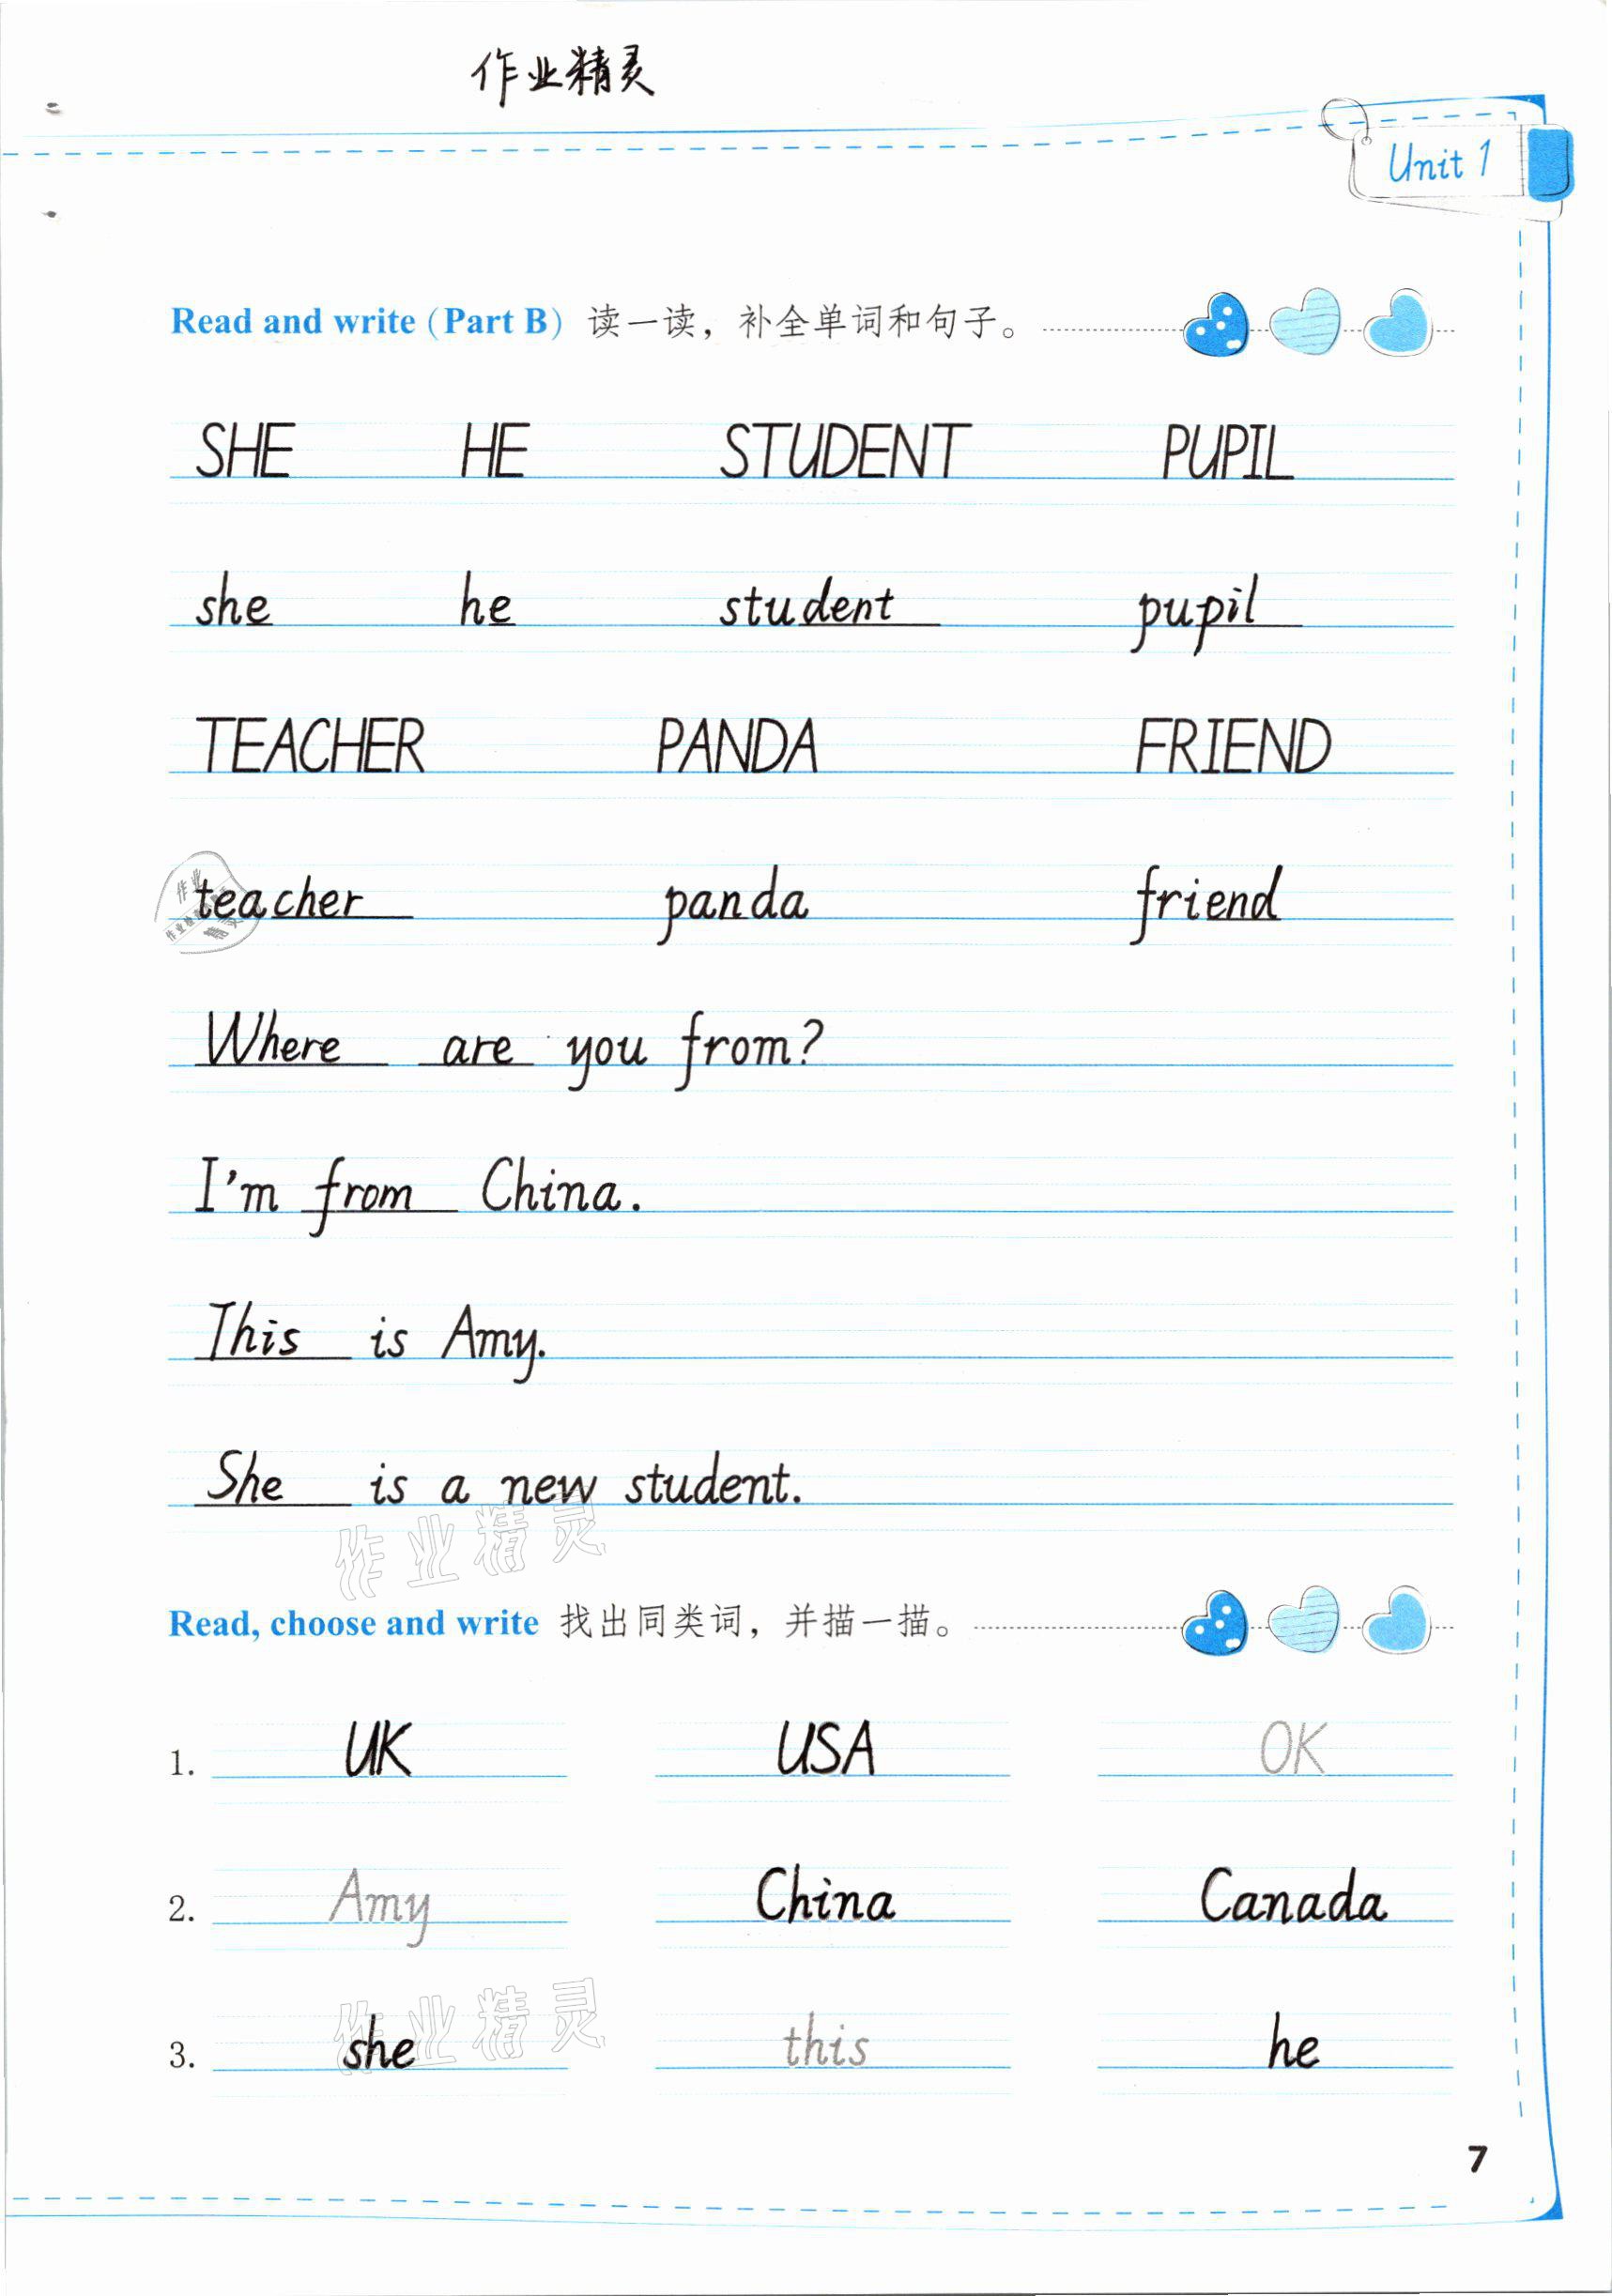 作业精灵
Unit 1
Read and write (Part B) 读一读，补全单词和句子。
SHE HE STUDENT PUPIL
she he student pupil
TEACHER PANDA FRIEND
teacher panda friend
Where are you from?
I'm from China.
This is Amy.
She is a new student.
作业精灵
Read, choose and write 找出同类词，并描一描。
1. UK USA OK
2. Amy China Canada
3. she this he
作业精灵
7